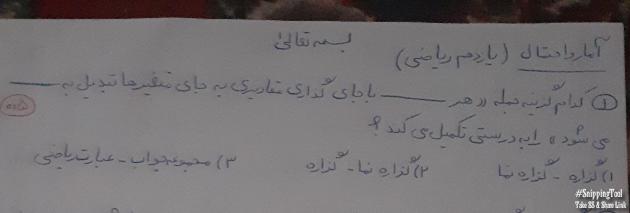 بسمه تعالی
آمار و احتمال (یازدهم ریاضی)
۱) کدام گزینه جمله «هر ــــــ با جای گذاری مقادیری به جای متغیرها تبدیل به ــــــ
می شود» را به درستی تکمیل می کند؟
ساده
۱) گزاره - گزاره نما ۲) گزاره نما - گزاره ۳) مجموعه جواب - عبارت ریاضی
#SnippingTool
Take SS & Share Link